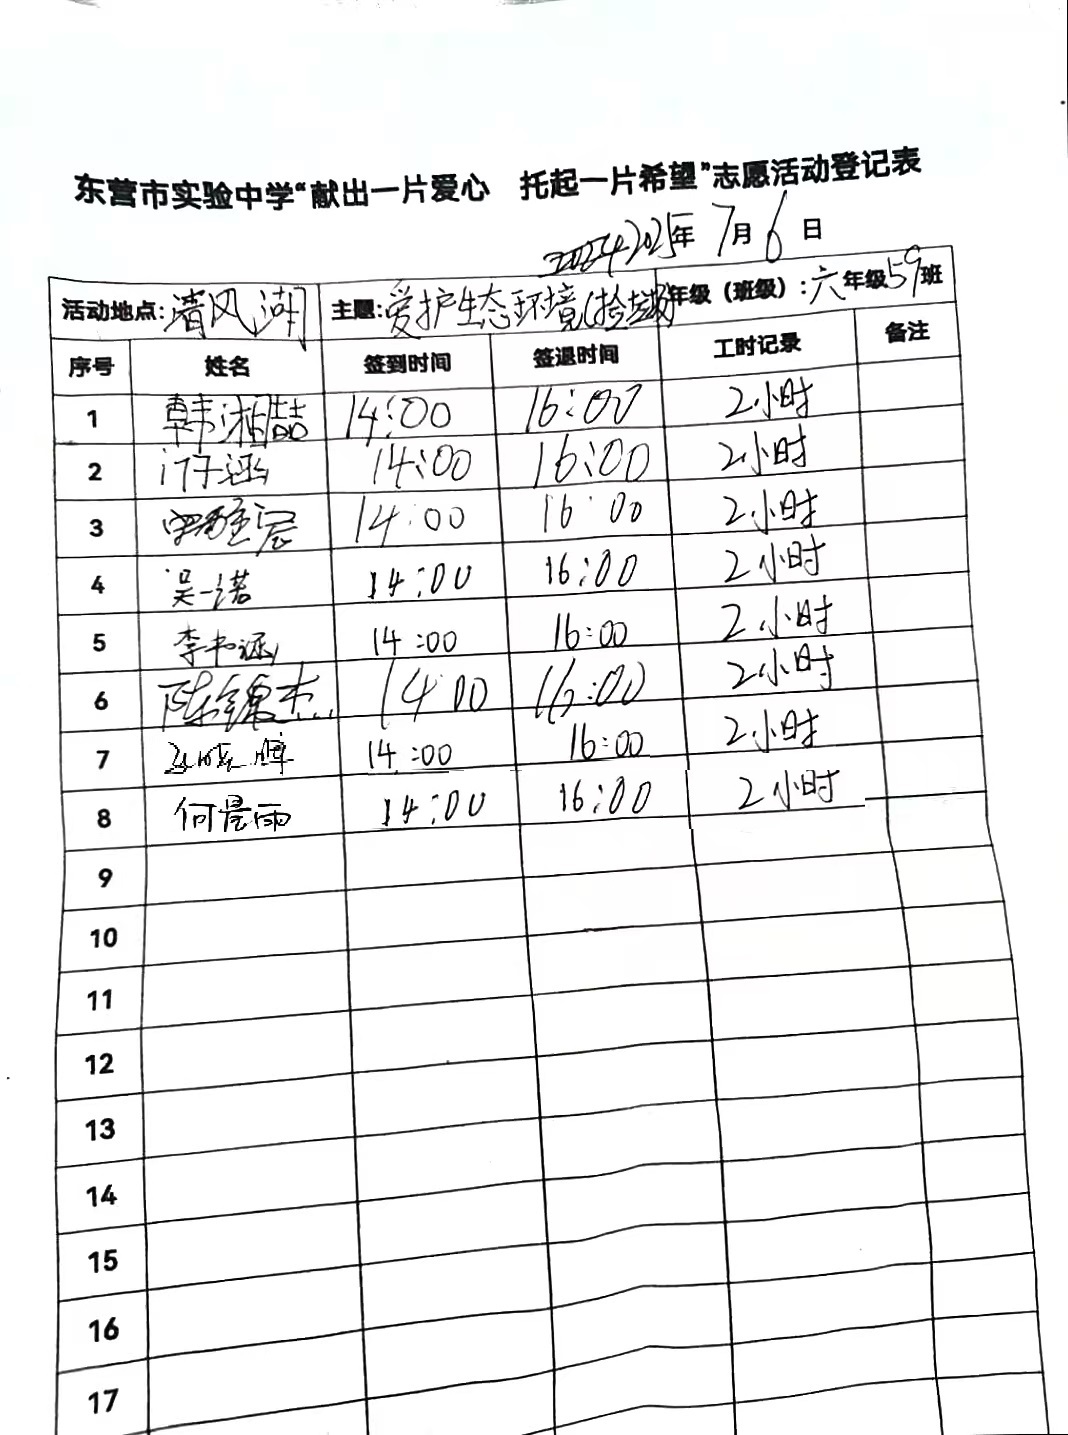 东营市实验中学“献出一片爱心 托起一片希望”志愿活动登记表
2025年7月6日
活动地点:清风湖 主题:爱护生态环境(捡垃圾) 年级(班级):六年级59班
序号 姓名 签到时间 签退时间 工时记录 备注
1 韩湘喆 14:00 16:00 2小时
2 许子涵 14:00 16:00 2小时
3 14:00 16:00 2小时
4 吴一诺 14:00 16:00 2小时
5 李书涵 14:00 16:00 2小时
6 陈锦杰 14:00 16:00 2小时
7 14:00 16:00 2小时
8 何昱雨 14:00 16:00 2小时
9
10
11
12
13
14
15
16
17